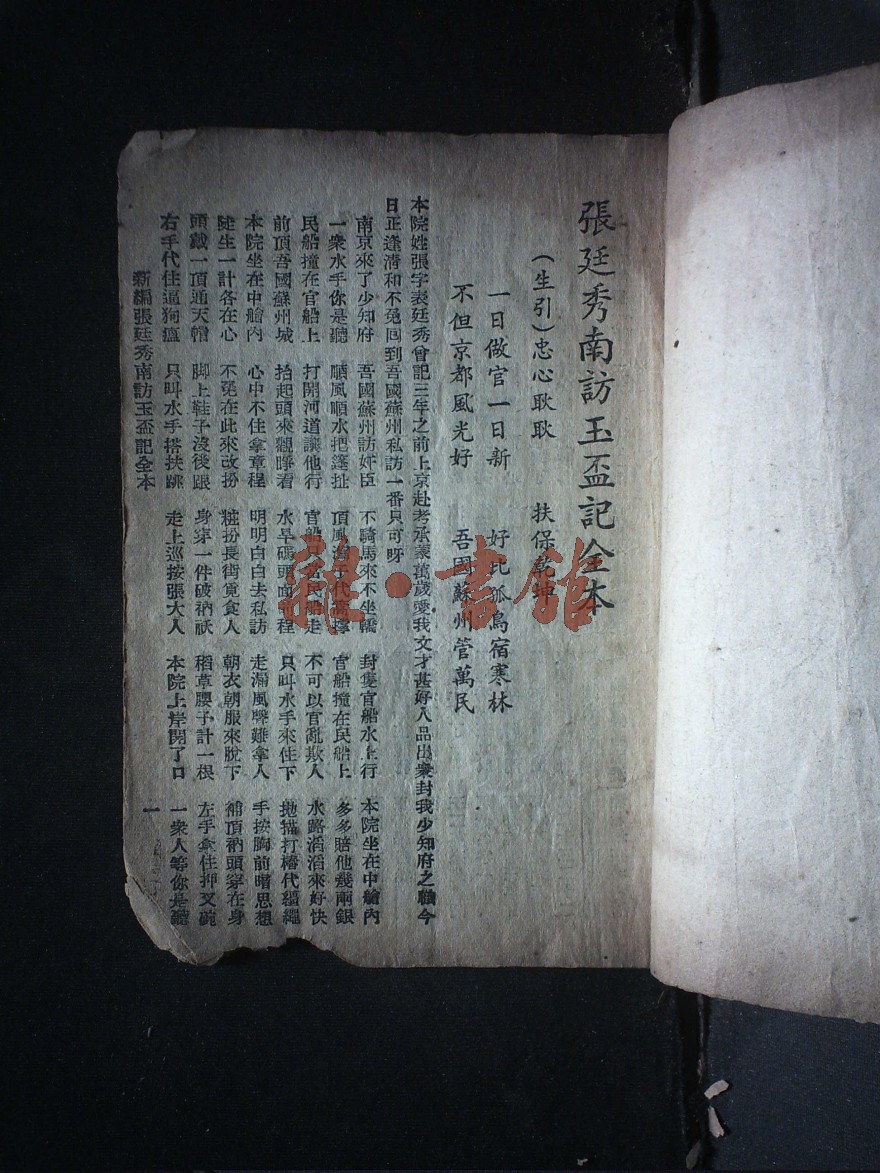 張廷秀南訪玉盃記全本
(生引)忠心耿耿　扶保乾坤
一日做官一日新　好比孤鳥宿寒林
不但京都風光好　吾國蘇州管萬民
本院姓張字表廷秀曾記三年之前上京赴考承蒙萬歲愛我文才甚好人品出衆封我少知府之職今
日正逢清和不免回到吾國蘇州私訪一番只可呀
南京來了少知府　吾國蘇州訪奸臣　不騎馬來不坐轎　封隻官船水上行　本院坐在中艙內
一衆水手你是聽　順風順水把篷扯　頂風灣子代篙撐　官船撞在民船上　多多賠他幾兩銀
民船撞在官船上　打開河道讓他行　官船只當民船走　不可以官亂欺人　水路滔滔來好快
前頂吾國蘇州城　抬起頭來觀睜看　水旱碼頭面前程　只叫水手來住下　拋描打樁代纜繩
本院坐在中艙內　心中不住拿章程　明明白白去私訪　走漏風聲難拿人　手按胸前暗思想
陡生一計各在心　不免在此來改扮　粧扮長街覓食人　朝衣朝服來脫下　補頂衲頭穿在身
頭戴一頂通天帽　脚上鞋子沒後跟　身穿一件破衲祆　稻草腰子計一根　左手拿住押叉碗
右手代住逼狗瘟　只叫水手搭扶跳　走上巡按張大人　本院上岸開了口　一衆人等你是聽
新編張廷秀南訪玉盃記全本　一
雜·書館